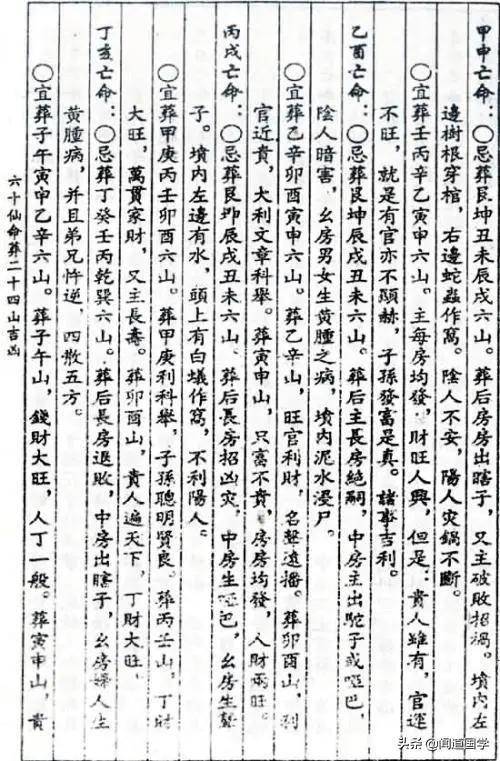 甲申亡命：○忌葬艮坤丑未辰戌六山。葬后房房出瞎子，又主破敗招禍。墳内左
邊樹根穿棺，右邊蛇蟲作窩。陰人不安，陽人灾鍋不斷。
○宜葬壬丙辛乙寅申六山。主每房均發，財旺人興，但是：貴人雖有，官運
不旺，就是有官亦不顯赫，子孫發富是真。諸事吉利。
乙酉亡命：○忌葬艮坤辰戌丑未六山。葬后主長房絶嗣，中房主出駝子或啞巴，
陰人暗害，幺房男女生黃腫之病，墳内泥水浸尸。
○宜葬乙辛卯酉寅申六山。葬乙辛山，旺官利財，名聲遠播。葬卯酉山，利
官近貴，大利文章科舉。葬寅申山，只富不貴，房房均發，人財兩旺。
丙戌亡命：○忌葬艮坤辰戌丑未六山。葬后長房招凶灾，中房生啞巴，幺房生聾
子。墳内左邊有水，頭上有白蟻作窩，不利陽人。
○宜葬甲庚丙壬卯酉六山。葬甲庚利科舉，子孫聰明賢良。葬丙壬山，丁財
大旺，萬貫家財，又主長壽。葬卯酉山，貴人遍天下，丁財大旺，
丁亥亡命：○忌葬丁癸壬丙乾巽六山。葬后長房退敗，中房出瞎子，幺房婦人生
黃腫病，并且弟兄忤逆，四散五方。
○宜葬子午寅申乙辛六山。葬子午山，錢財大旺，人丁一般。葬寅申山，貴
六十仙命葬二十四山吉凶
头条 @闻道国学